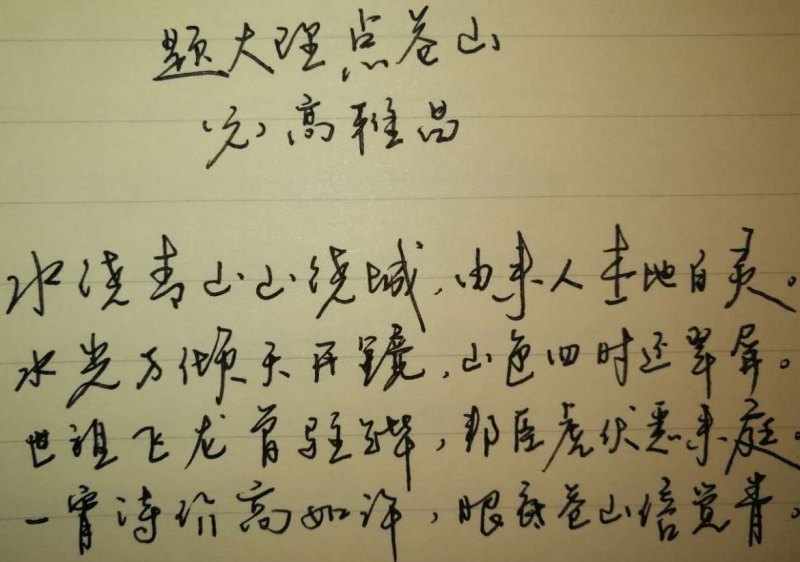 题大理点苍山
(元)高雅昌
水浇青山山绕城，由来人杰地自灵。
水光万倾天开镜，山色四时还翠屏。
世祖飞龙曾驻跸，邦臣虎伏悉来庭。
一宵诗价高如许，眼底苍山倍觉青。